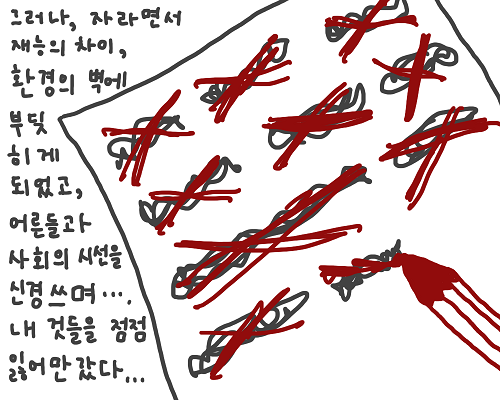 그러나, 자라면서
재능의 차이,
환경의 벽에
부딪
히게
되었고,
어른들과
사회의 시선을
신경쓰며....
내 것들을 점점
잃어만 갔다...